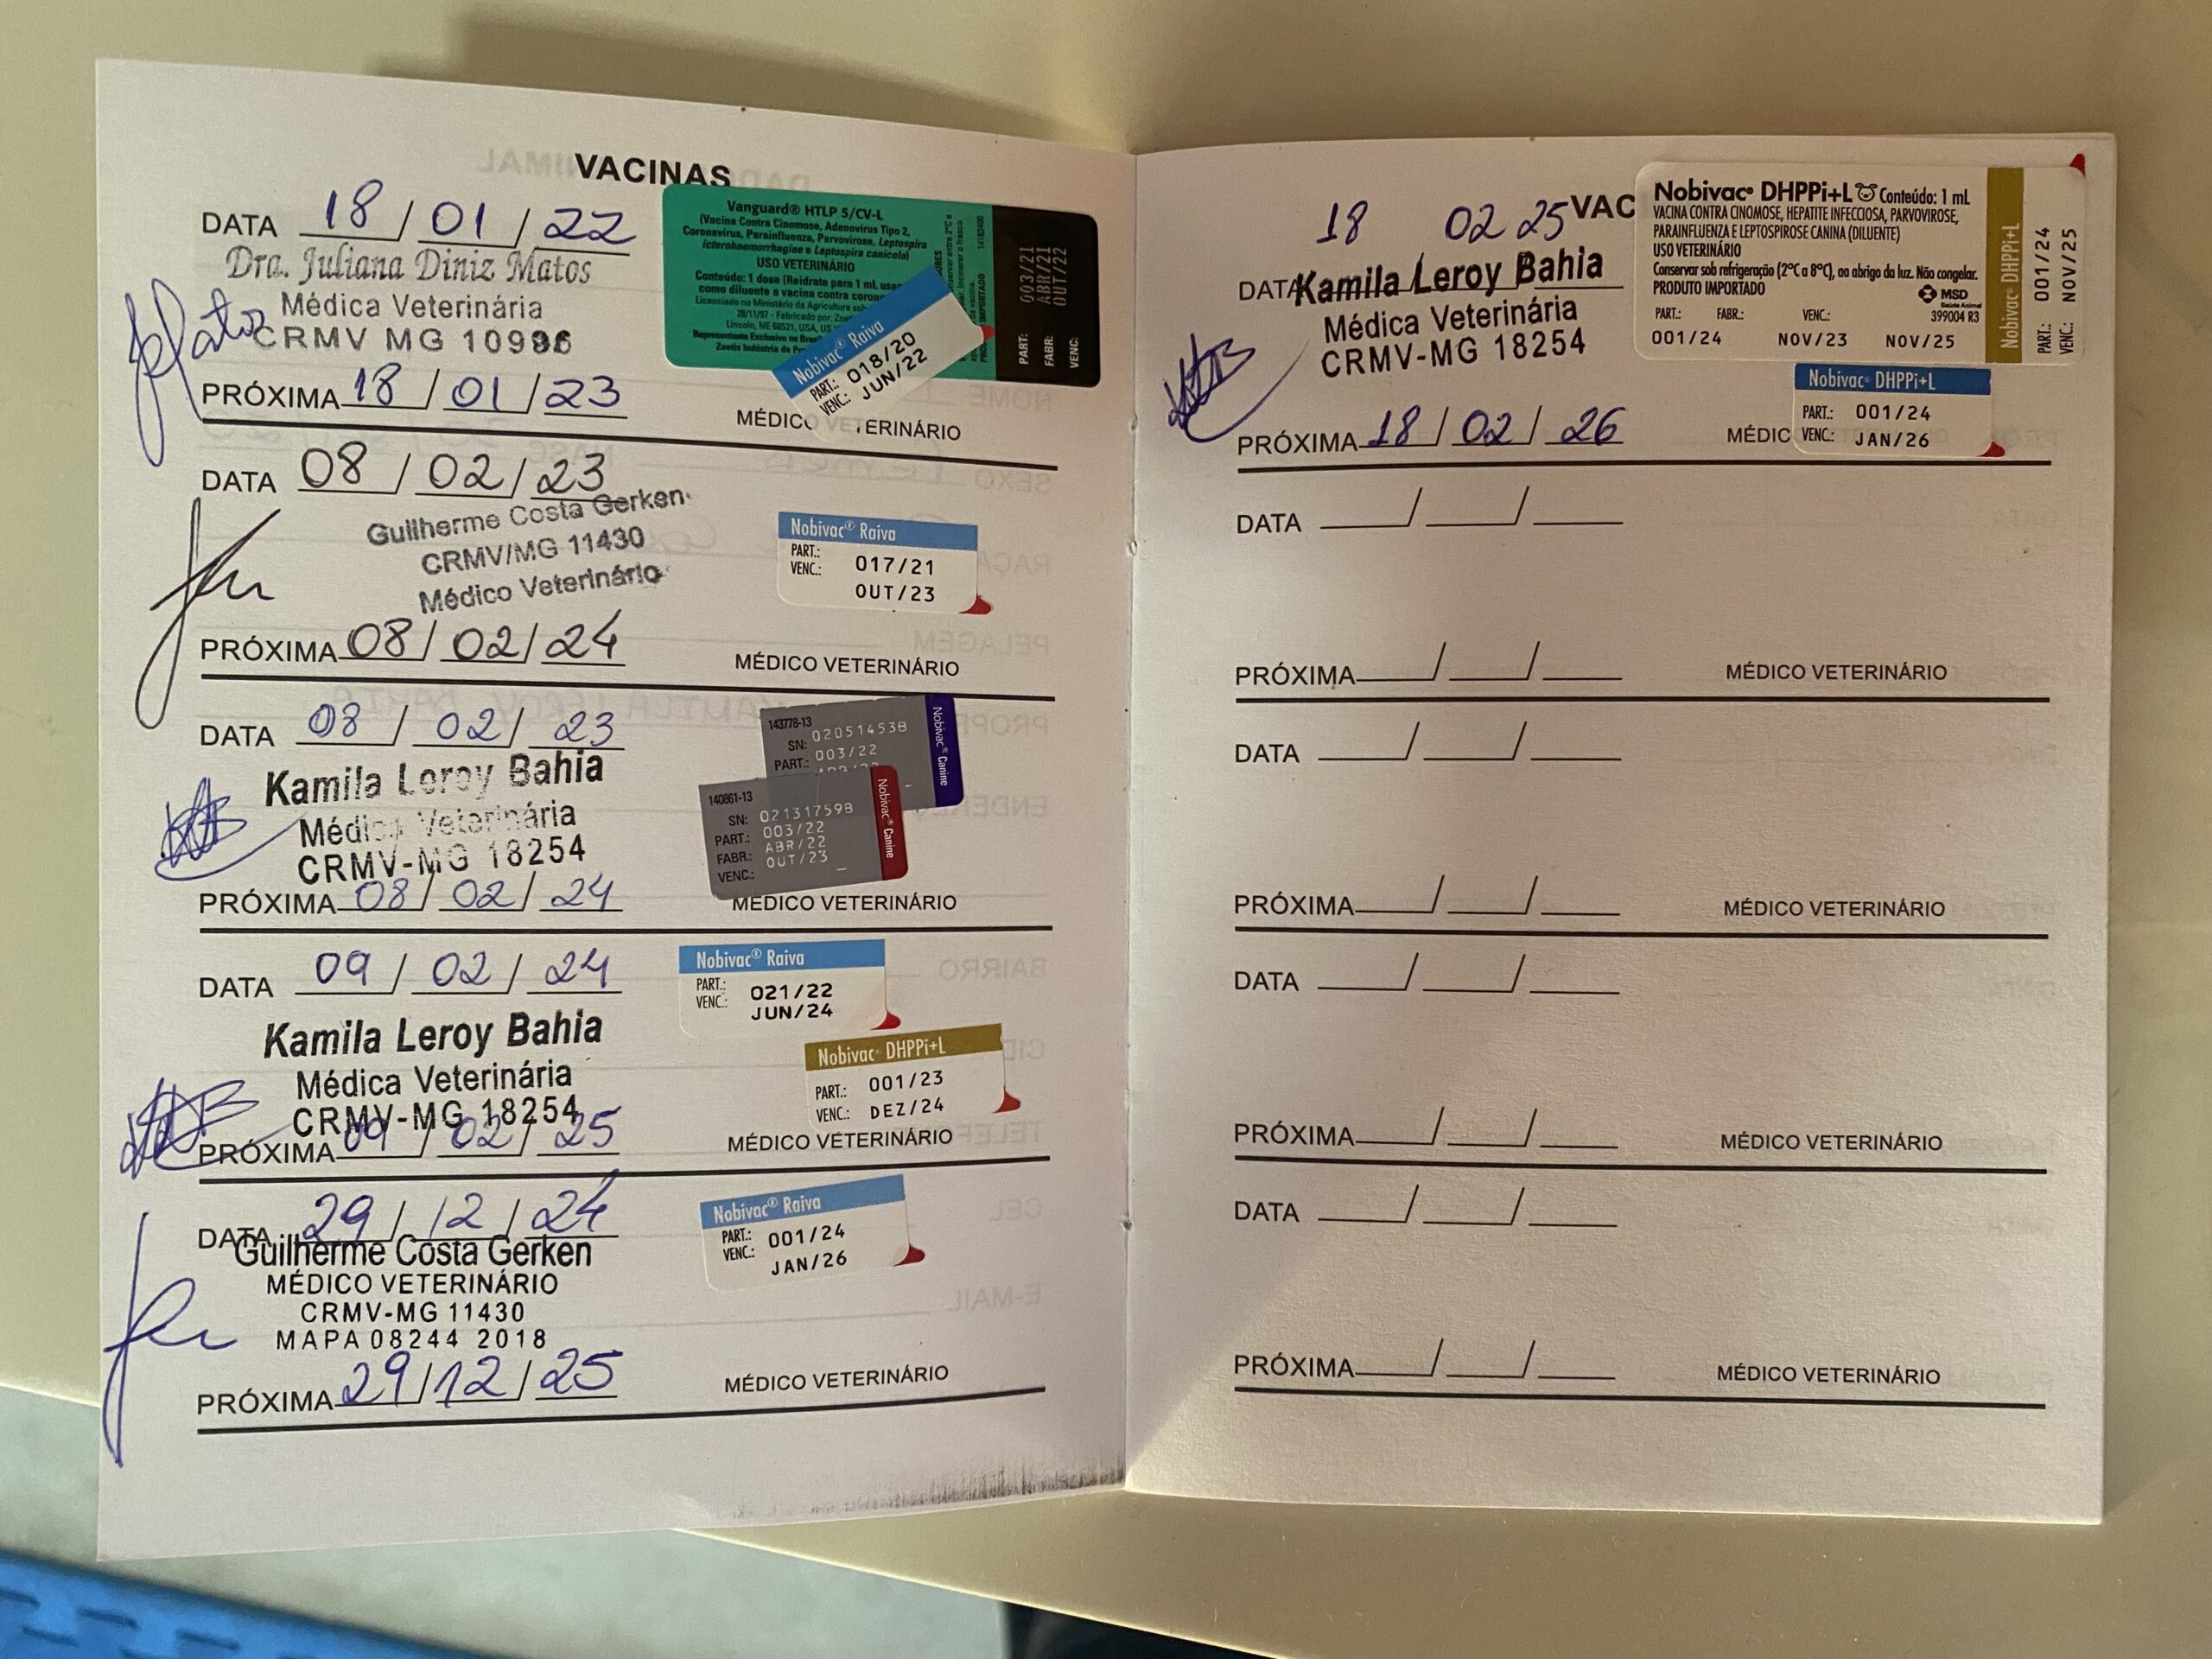 VACINAS
DATA 18 / 01 / 22
Dra. Juliana Diniz Matos
Médica Veterinária
CRMV MG 10996
PRÓXIMA 18 / 01 / 23
Vanguard® HTLP 5/CV-L
(Vacina Contra Cinomose, Adenovírus Tipo 2,
Coronavírus, Parainfluenza, Parvovirose, Leptospira
icterohaemorrhagiae e Leptospira canicola)
USO VETERINÁRIO
Conteúdo: 1 dose (Reidrate para 1 mL
como diluente a vacina contra
Licenciado no Ministério da Agricultura
28/11/97 - Fabricado por:
Lincoln, NE 68521, USA,
Representante Exclusivo no
Zoetis Indústria de
PART: 003/21
FABR: ABR/21
VENC: OUT/22
Nobivac® Raiva
PART.: 018/20
VENC.: JUN/22
MÉDICO VETERINÁRIO
DATA 08 / 02 / 23
Guilherme Costa Gerken
CRMV/MG 11430
Médico Veterinário
PRÓXIMA 08 / 02 / 24
Nobivac® Raiva
PART.: 017/21
VENC.: OUT/23
MÉDICO VETERINÁRIO
DATA 08 / 02 / 23
Kamila Leroy Bahia
Médica Veterinária
CRMV-MG 18254
PRÓXIMA 08 / 02 / 24
143778-13
SN: 02051453B
PART.: 003/22
Nobivac® Canine
140861-13
SN: 02131759B
PART.: 003/22
FABR.: ABR/22
VENC.: OUT/23
Nobivac® Canine
MÉDICO VETERINÁRIO
DATA 09 / 02 / 24
Kamila Leroy Bahia
Médica Veterinária
CRMV-MG 18254
PRÓXIMA 09 / 02 / 25
Nobivac® Raiva
PART.: 021/22
VENC.: JUN/24
Nobivac DHPPi+L
PART.: 001/23
VENC.: DEZ/24
MÉDICO VETERINÁRIO
DATA 29 / 12 / 24
Guilherme Costa Gerken
MÉDICO VETERINÁRIO
CRMV-MG 11430
MAPA 08244 2018
PRÓXIMA 29/12/25
Nobivac® Raiva
PART.: 001/24
VENC.: JAN/26
MÉDICO VETERINÁRIO
VAC
DATA 18 02 25
Kamila Leroy Bahia
Médica Veterinária
CRMV-MG 18254
PRÓXIMA 18 / 02 / 26
Nobivac® DHPPi+L Conteúdo: 1 mL
VACINA CONTRA CINOMOSE, HEPATITE INFECCIOSA, PARVOVIROSE,
PARAINFLUENZA E LEPTOSPIROSE CANINA (DILUENTE)
USO VETERINÁRIO
Conservar sob refrigeração (2°C a 8°C), ao abrigo da luz. Não congelar.
PRODUTO IMPORTADO
MSD
Saúde Animal
399004 R3
PART.: FABR.: VENC.:
001/24 NOV/23 NOV/25
Nobivac® DHPPi+L
PART.: 001/24
VENC.: NOV/25
Nobivac® DHPPi+L
PART.: 001/24
VENC.: JAN/26
MÉDIC
DATA / /
PRÓXIMA / /
MÉDICO VETERINÁRIO
DATA / /
PRÓXIMA / /
MÉDICO VETERINÁRIO
DATA / /
PRÓXIMA / /
MÉDICO VETERINÁRIO
DATA / /
PRÓXIMA / /
MÉDICO VETERINÁRIO